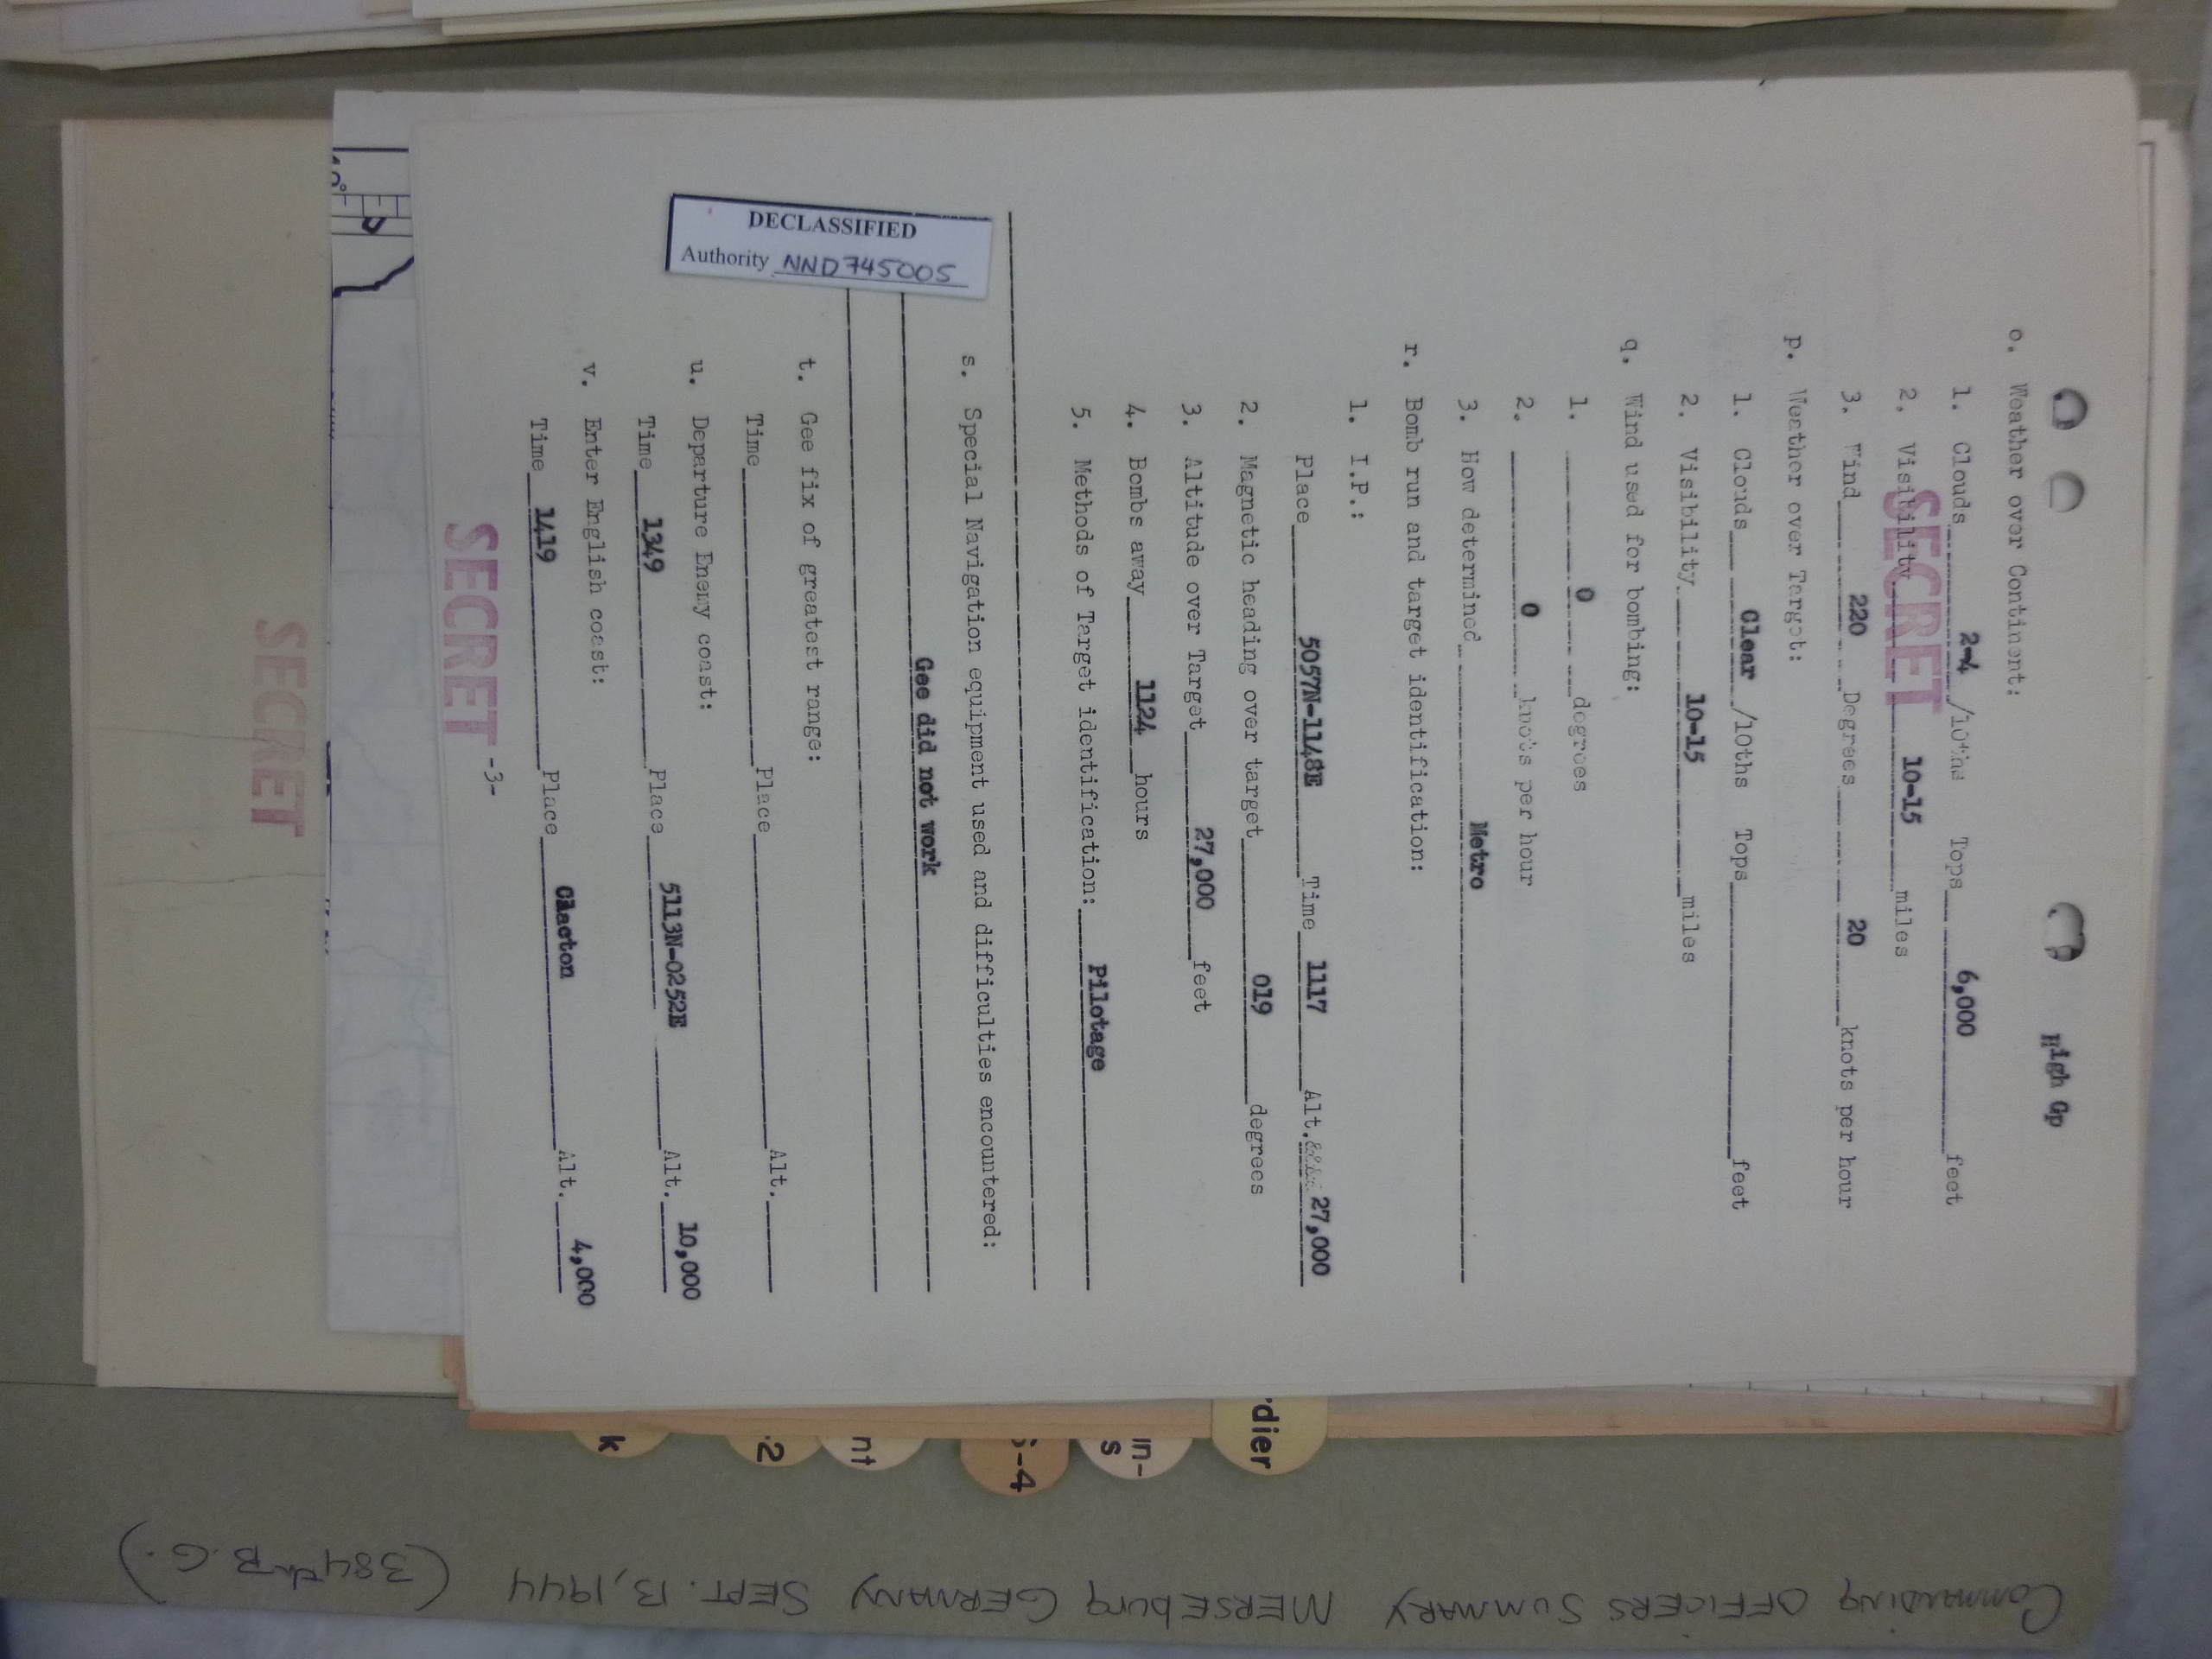 High Gp
o. Weather over Continent:
1. Clouds 2-4 /10ths Tops 6,000 feet
SECRET
2. Visibility 10-15 miles
3. Wind 220 Degrees 20 knots per hour
p. Weather over Target:
1. Clouds Clear /10ths Tops feet
2. Visibility 10-15 miles
q. Wind used for bombing:
1. 0 degrees
2. 0 knots per hour
3. How determined Metro
r. Bomb run and target identification:
1. I.P.:
Place 5057N-1148E Time 1117 Alt. 27,000
2. Magnetic heading over target 019 degrees
3. Altitude over Target 27,000 feet
4. Bombs away 1124 hours
5. Methods of Target identification: Pilotage
s. Special Navigation equipment used and difficulties encountered:
Gee did not work
DECLASSIFIED
Authority NND745005
t. Gee fix of greatest range:
Time Place Alt.
u. Departure Enemy coast:
Time 1349 Place 5113N-0252E Alt. 10,000
v. Enter English coast:
Time 1419 Place Clacton Alt. 4,000
SECRET -3-
SECRET
10°
rdier
in-
s
-4
nt
.2
k
COMMANDING OFFICERS SUMMARY MERSEBURG GERMANY SEPT. 13, 1944 (384th B.G.)